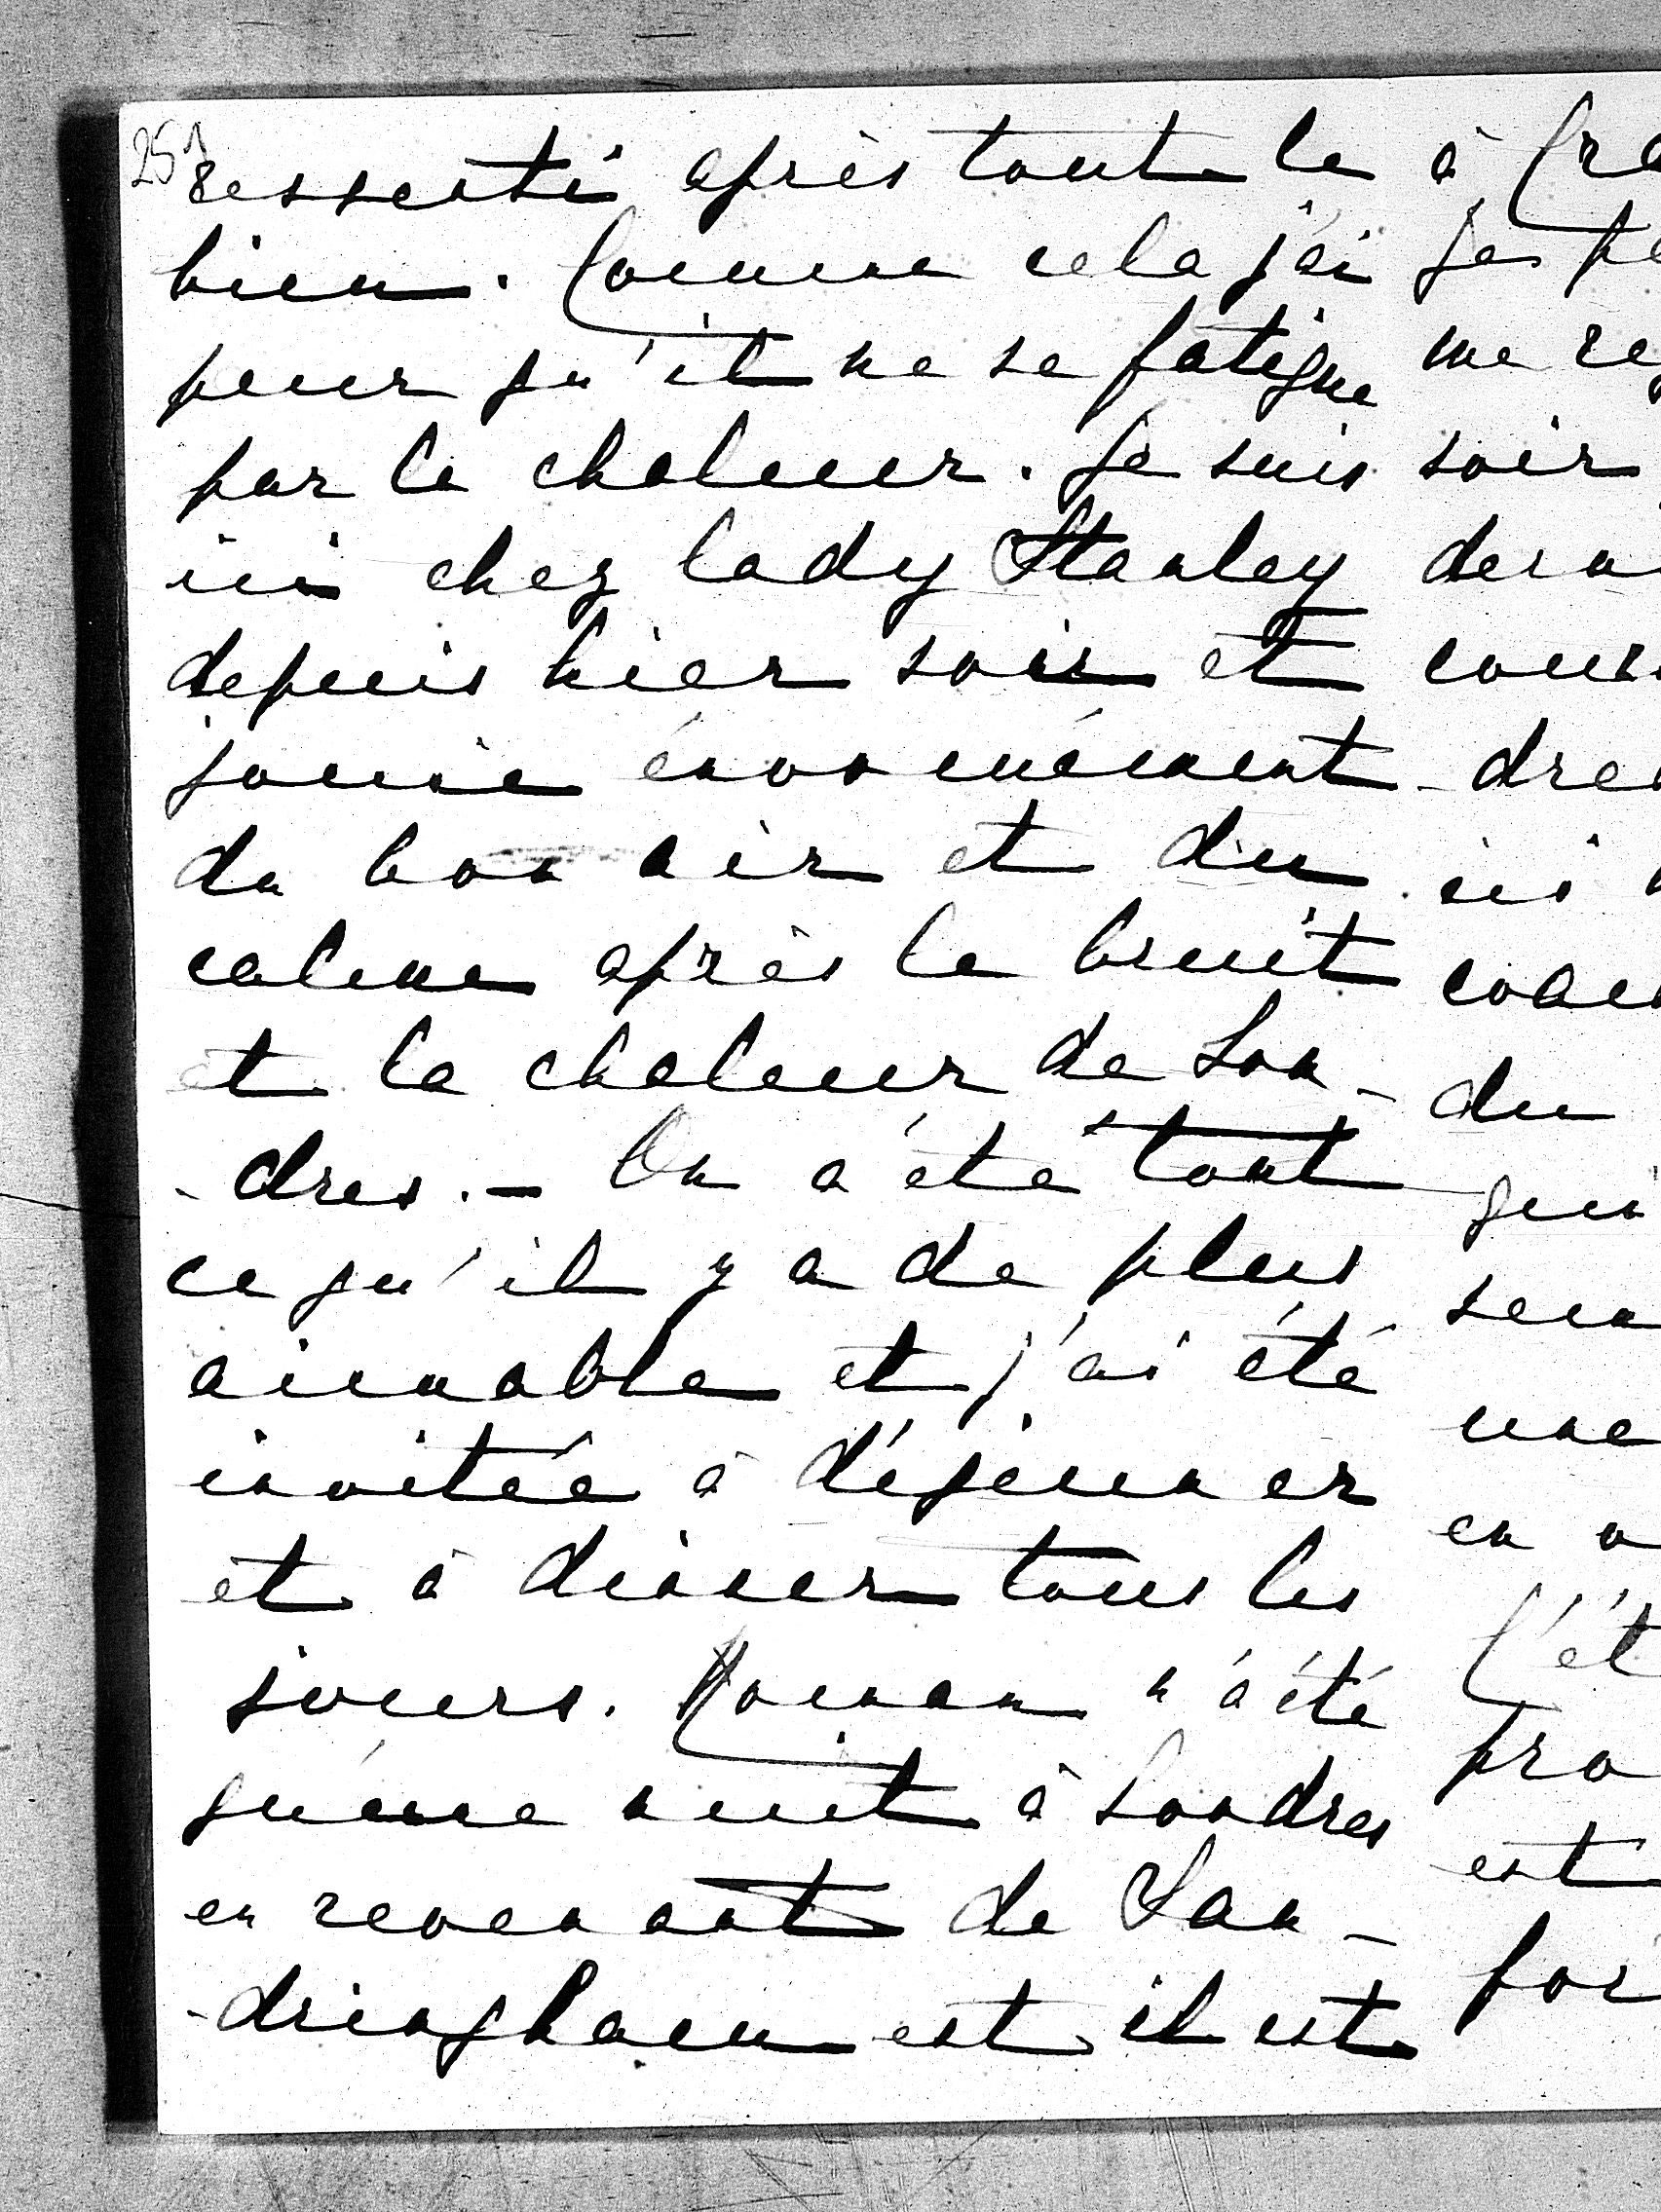 251
ressenti après tout le
bien. Comme cela j'ai
peur qu'il ne se fatigue
par la chaleur. Je suis
ici chez lady Stanley
depuis hier soir et
jouie énormément
du bon air et du
calme après le bruit
et la chaleur de Lon-
-dres. - On a été tout
ce qu'il y a de plus
aimable et j'ai été
invitée à déjeuner
et à diner tous les
jours. n'a été
qu'une nuit à Londres
en revenant de San-
-dringham et il est
à
Je
me
soir
cour
-dre
ici
du
qui
une
en
C'ét
est